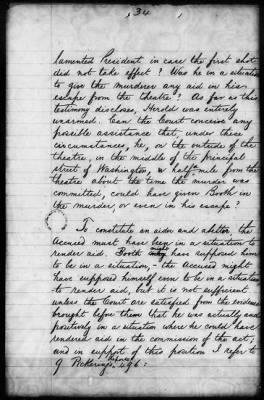 34
lamented President in case the first shot
did not take effect? Was he in a situation
to give the murderer any aid in his
escape from the theatre? As far as this
testimony discloses, Herold was entirely
unarmed. Can the Court conceive any
possible assistance that, under these
circumstances, he, on the outside of the
theatre, in the middle of the principal
street of Washington, a half-mile from the
theatre about the time the murder was
committed, could have given Booth in
the murder, or even in his escape?
To constitute an aider and abettor the
Accused must have been in a situation to
render aid. Booth might have supposed him
to be in a situation,—the Accused might
have supposed himself to be in a situation
to render aid, but it is not sufficient
unless the Court are satisfied from the evidence
brought before them that he was actually and
positively in a situation where he could have
rendered aid in the commission of the act,
and in support of this position I refer to
9 Pickering's Reports 496: